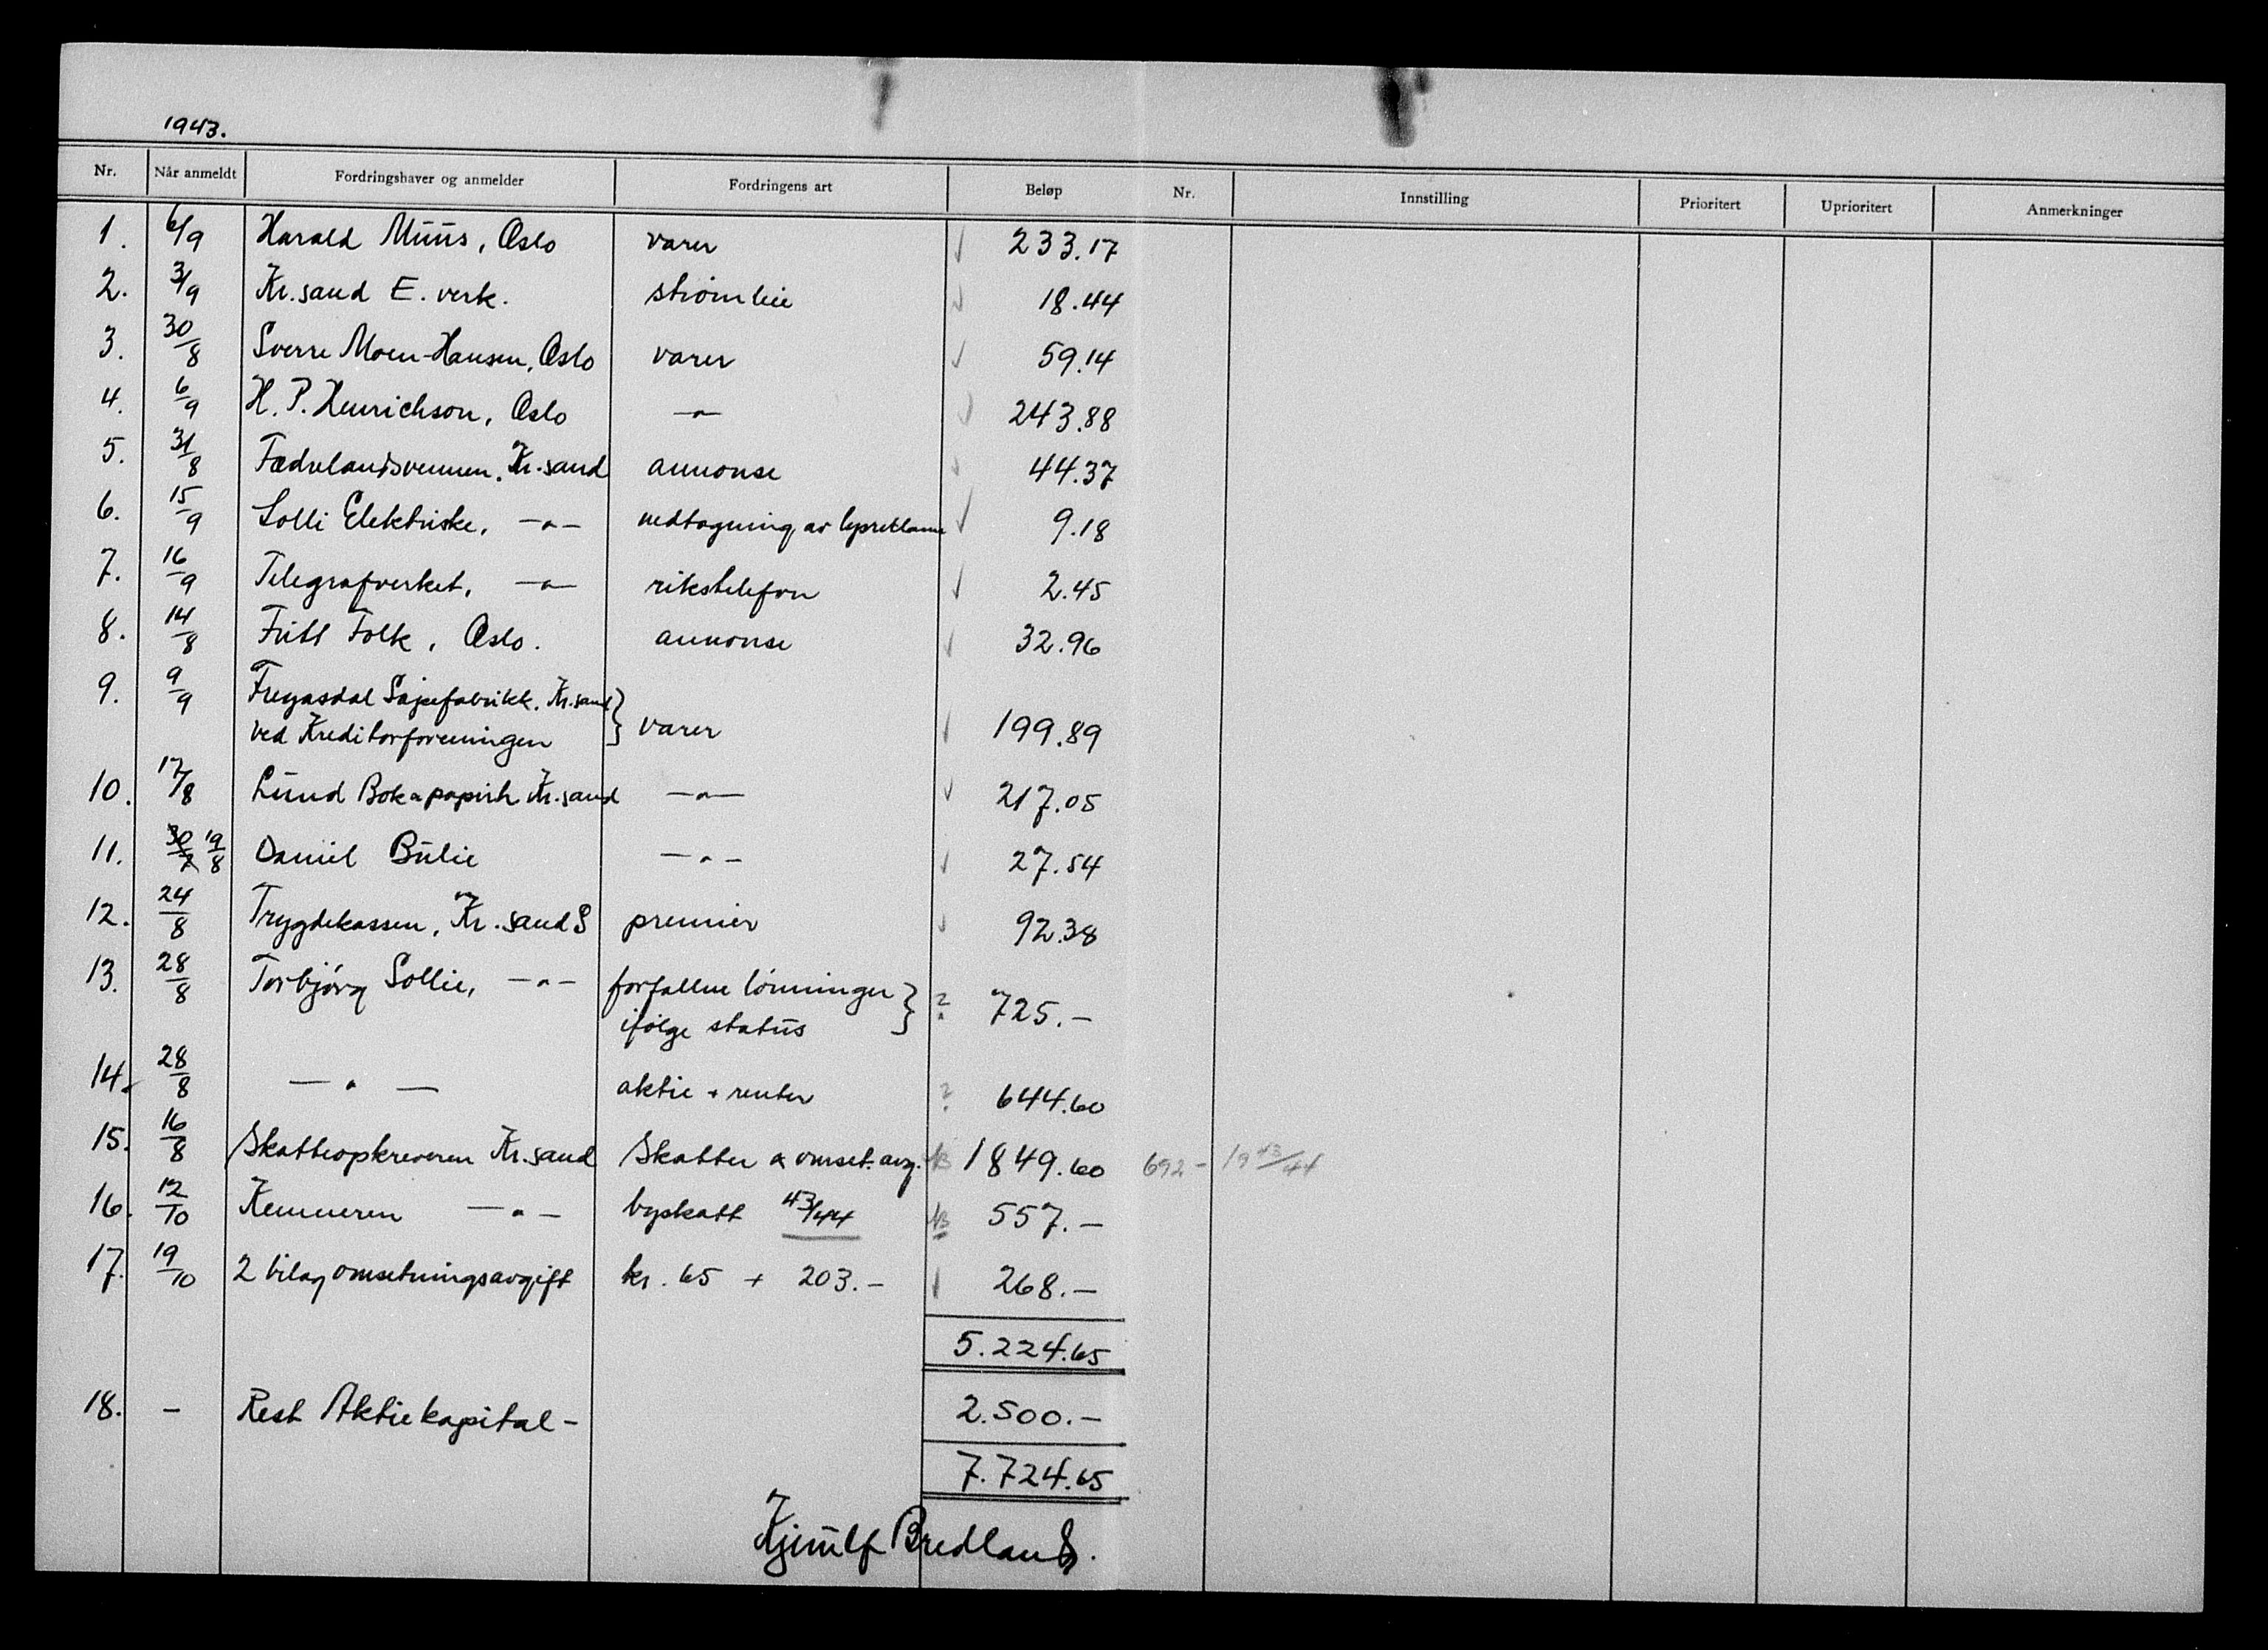 1943.
Nr. Når anmeldt Fordringshaver og anmelder Fordringens art Beløp Nr. Innstilling Prioritert Uprioritert Anmerkninger
1. 6/9 Harald Muus, Oslo varer √ 233.17
2. 3/9 Kr.sand E. verk. strømleie √ 18.44
3. 30/8 Sverre Moen-Hansen, Oslo varer √ 59.14
4. 6/9 H. P. Henrichson, Oslo —"— √ 243.88
5. 31/8 Fædrelandsvennen. Kr.sand annonse √ 44.37
6. 15/9 Solli Elektriske, —"— nedtagning av lysreklame √ 9.18
7. 16/9 Telegrafverket, —"— rikstelefon √ 2.45
8. 14/8 Fritt Folk, Oslo. annonse √ 32.96
9. 9/9 Freyasdal Såpefabrikk. Kr.sand
ved Kreditorforeningen } varer √ 199.89
10. 17/8 Lund Bok & papirh Kr.sand —"— √ 217.05
11. 30/7 19/8 Daniel Bulie —"— √ 27.54
12. 24/8 Trygdekassen, Kr.sand S premier √ 92.38
13. 28/8 Torbjørg Sollie, —"— forfallne lønninger
ifølge status } ? 725.—
14. 28/8 —"— aktie + renter ? 644.60
15. 16/8 Skatteopkreveren Kr.sand Skatter & omset.avg. NB 1849.60 692 - 19 43/44
16. 12/10 Kemneren —"— byskatt 43/44 NB 557.—
17. 19/10 2 bilag omsetningsavgift kr. 65 + 203.— √ 268.—
5.224.65
18. — Rest Aktiekapital — 2.500.—
7.724.65
Kjeulf Bredland.